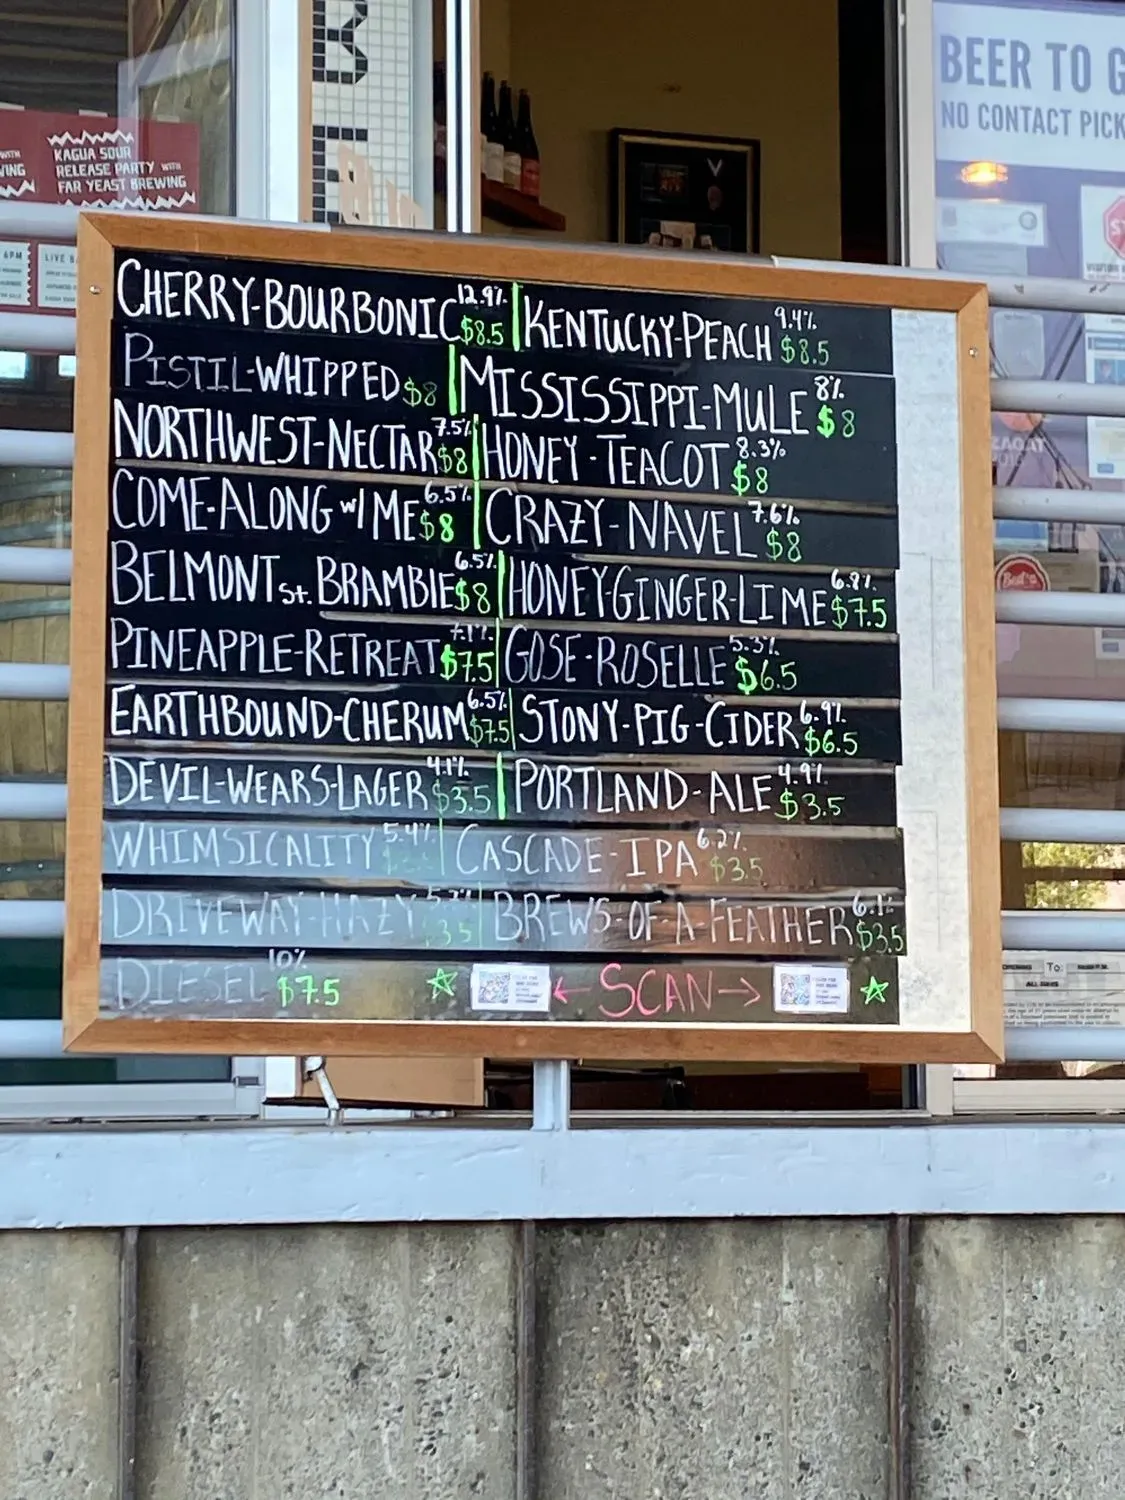 BEER TO G
NO CONTACT PICK
KAGUA SOUR
RELEASE PARTY WITH
FAR YEAST BREWING
WITH
WING
6PM
LIVE
CHERRY-BOURBONIC 12.9% $8.5 | KENTUCKY-PEACH 9.4% $8.5
PISTIL-WHIPPED $8 | MISSISSIPPI-MULE 8% $8
NORTHWEST-NECTAR 7.5% $8 | HONEY-TEACOT 8.3% $8
COME-ALONG w/ ME 6.5% $8 | CRAZY-NAVEL 7.6% $8
BELMONT St. BRAMBLE 6.5% $8 | HONEY-GINGER-LIME $7.5
PINEAPPLE-RETREAT 7.1% $7.5 | GOSE-ROSELLE 5.3% $6.5
EARTHBOUND-CHERUM 6.5% $7.5 | STONY-PIG-CIDER 6.9% $6.5
DEVIL-WEARS-LAGER 4.1% $3.5 | PORTLAND-ALE 4.9% $3.5
WHIMSICALITY 5.4% | CASCADE-IPA 6.2% $3.5
DRIVEWAY-HAZY 3.5 | BREWS-OF-A-FEATHER 6.1% $3.5
DIESEL 10% $7.5 ☆ ← SCAN → ☆
To: